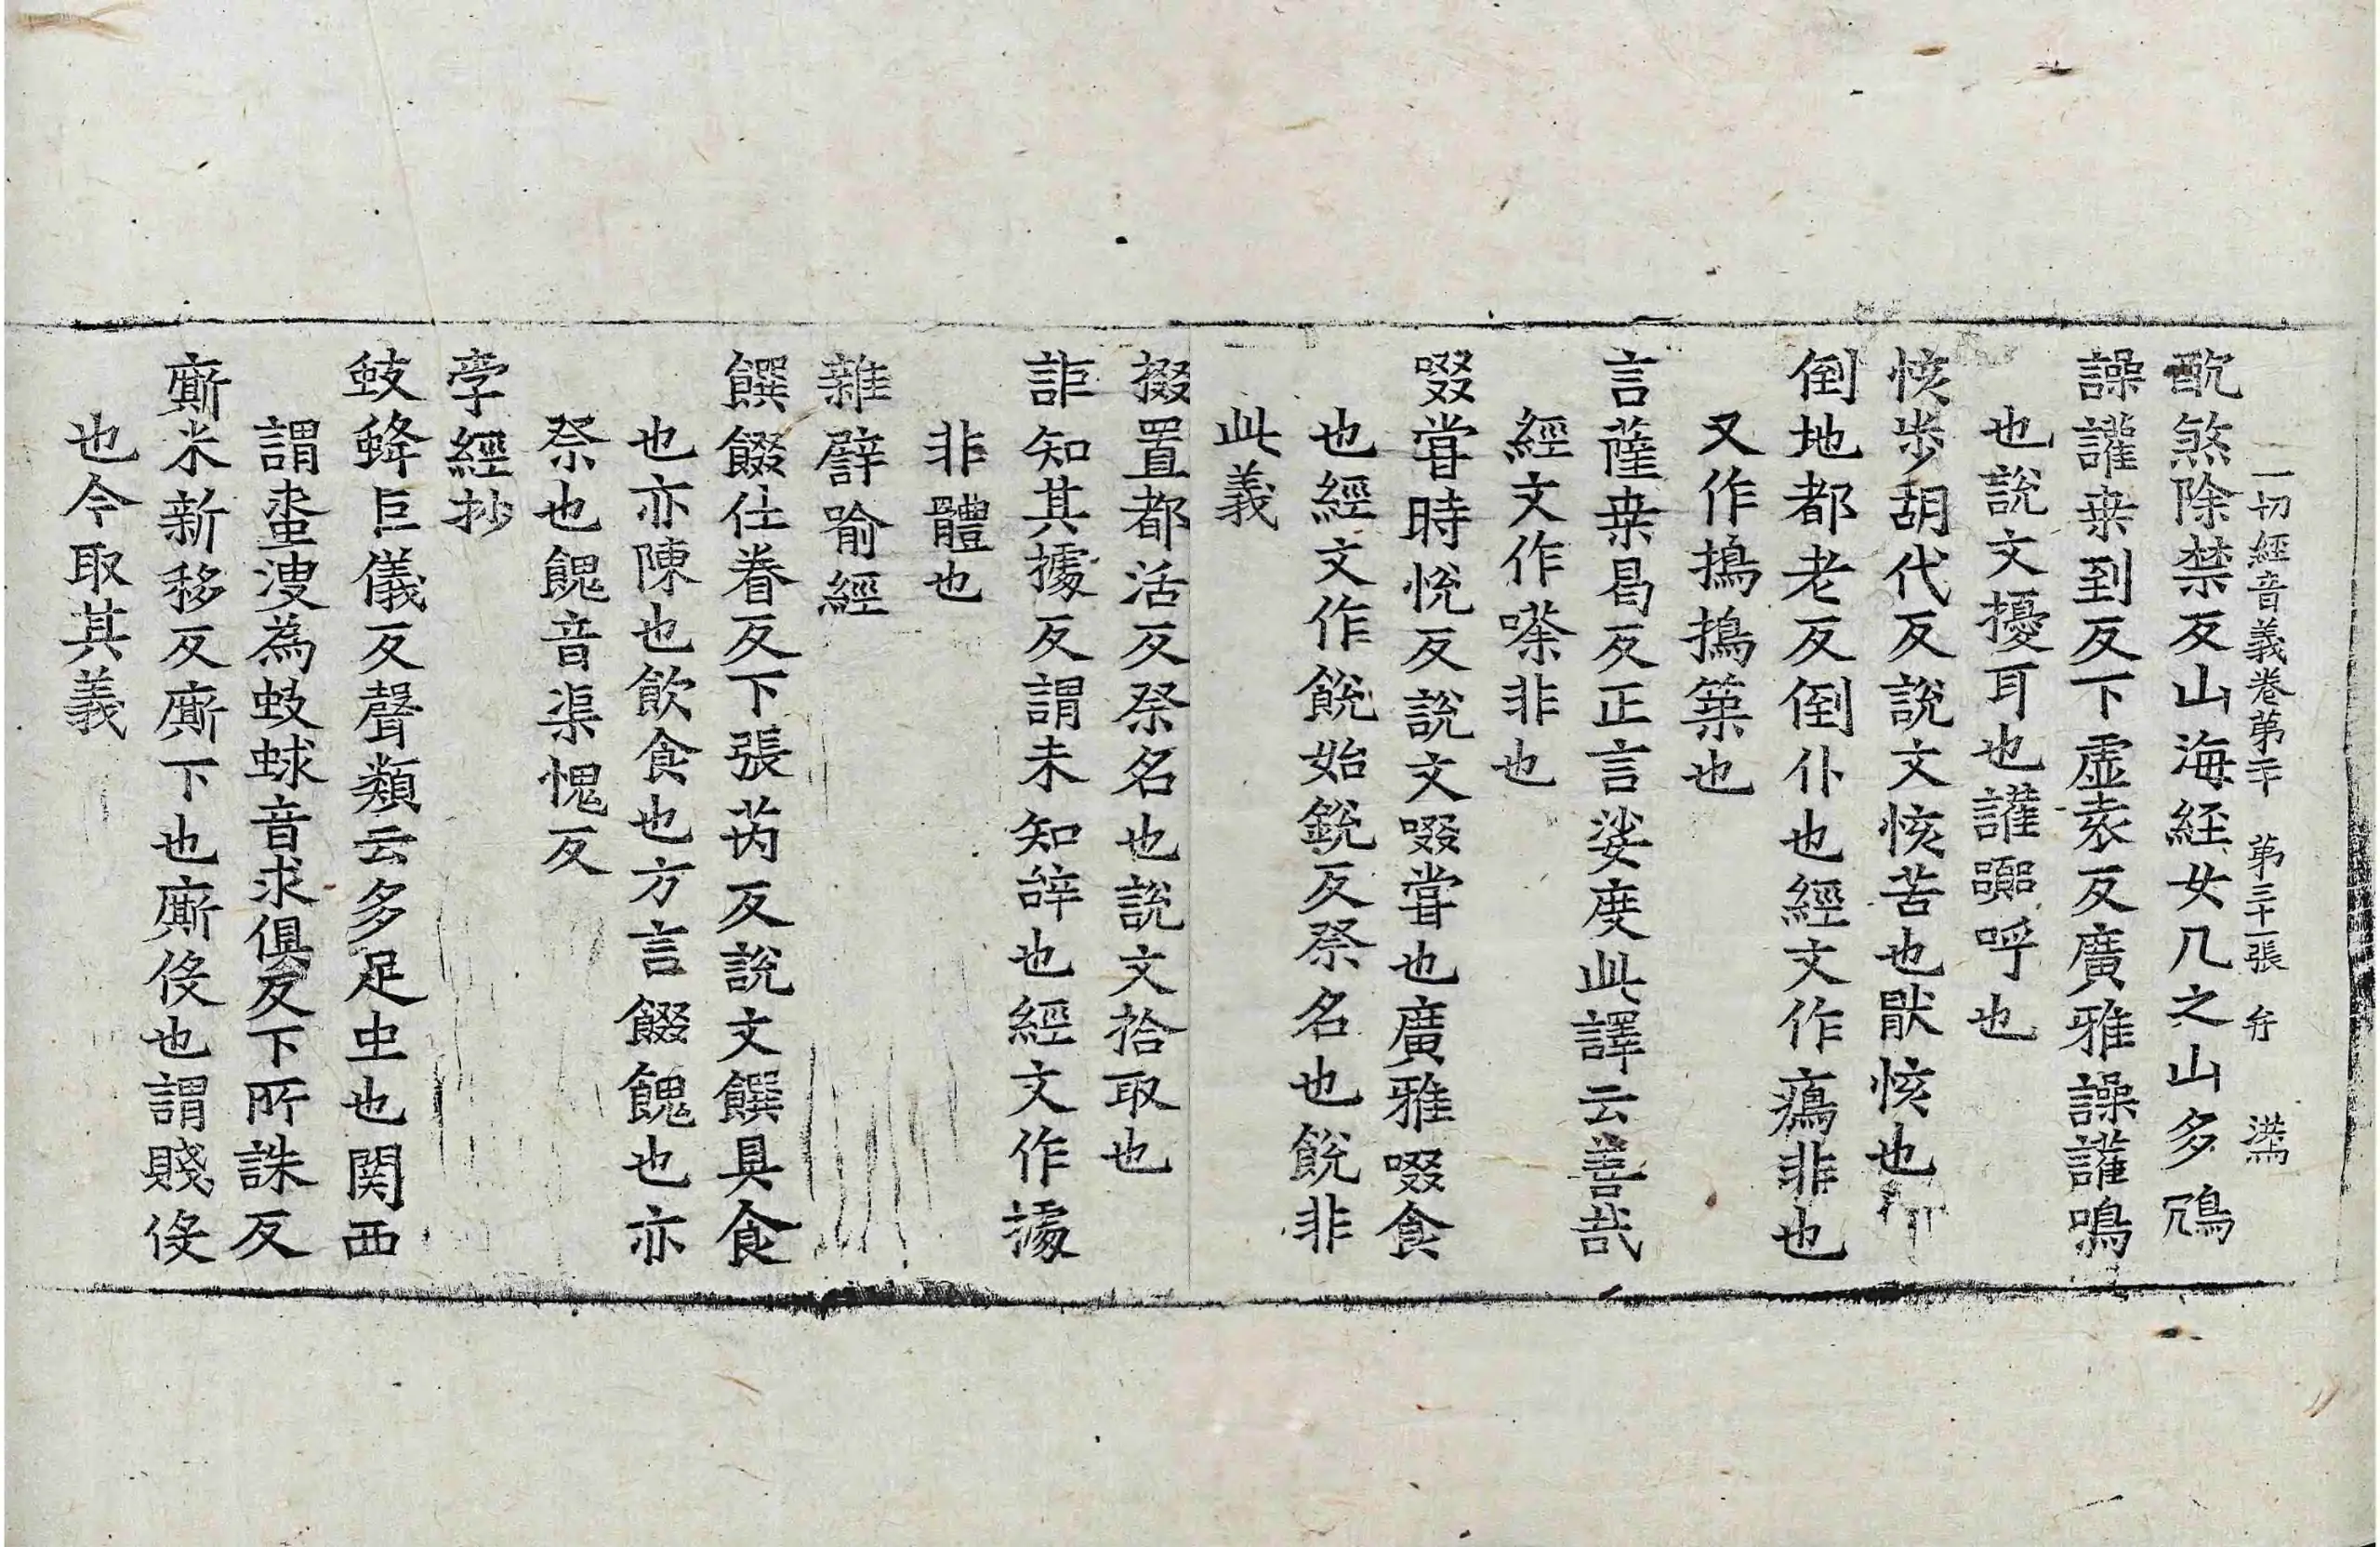 一切經音義卷苐二十 苐三十一張 弁 㴇
酖煞除禁反山海経女几之山多鴆
譟讙桒到反下虛𡊮反廣雅譟讙鳴
也說文擾耳也讙嚻呼也
㤥㱐胡代反說文㤥苦也猒㤥也
倒地都老反倒仆也經文作㿒非也
又作擣擣築也
言薩桒曷反正言娑度此譯云善㢤
經文作嗏非也
啜甞時恱反說文啜甞也廣雅啜食
也經文作餟始銳反祭名也餟非
此義
掇置都活反祭名也說文拾取也
詎知其據反謂未知辝也經文作㩀
非體也
雜譬喻經
饌餟仕眷反下張芮反說文饌具食
也亦陳也飲食也方言餟餽也亦
祭也餽音渠愧反
孛經抄
蚑蜂巨儀反聲類云多足虫也関西
謂蚤溲為蚑蛷音求俱反下所誅反
廝米新移反廝下也廝伇也謂賤伇
也今取其義